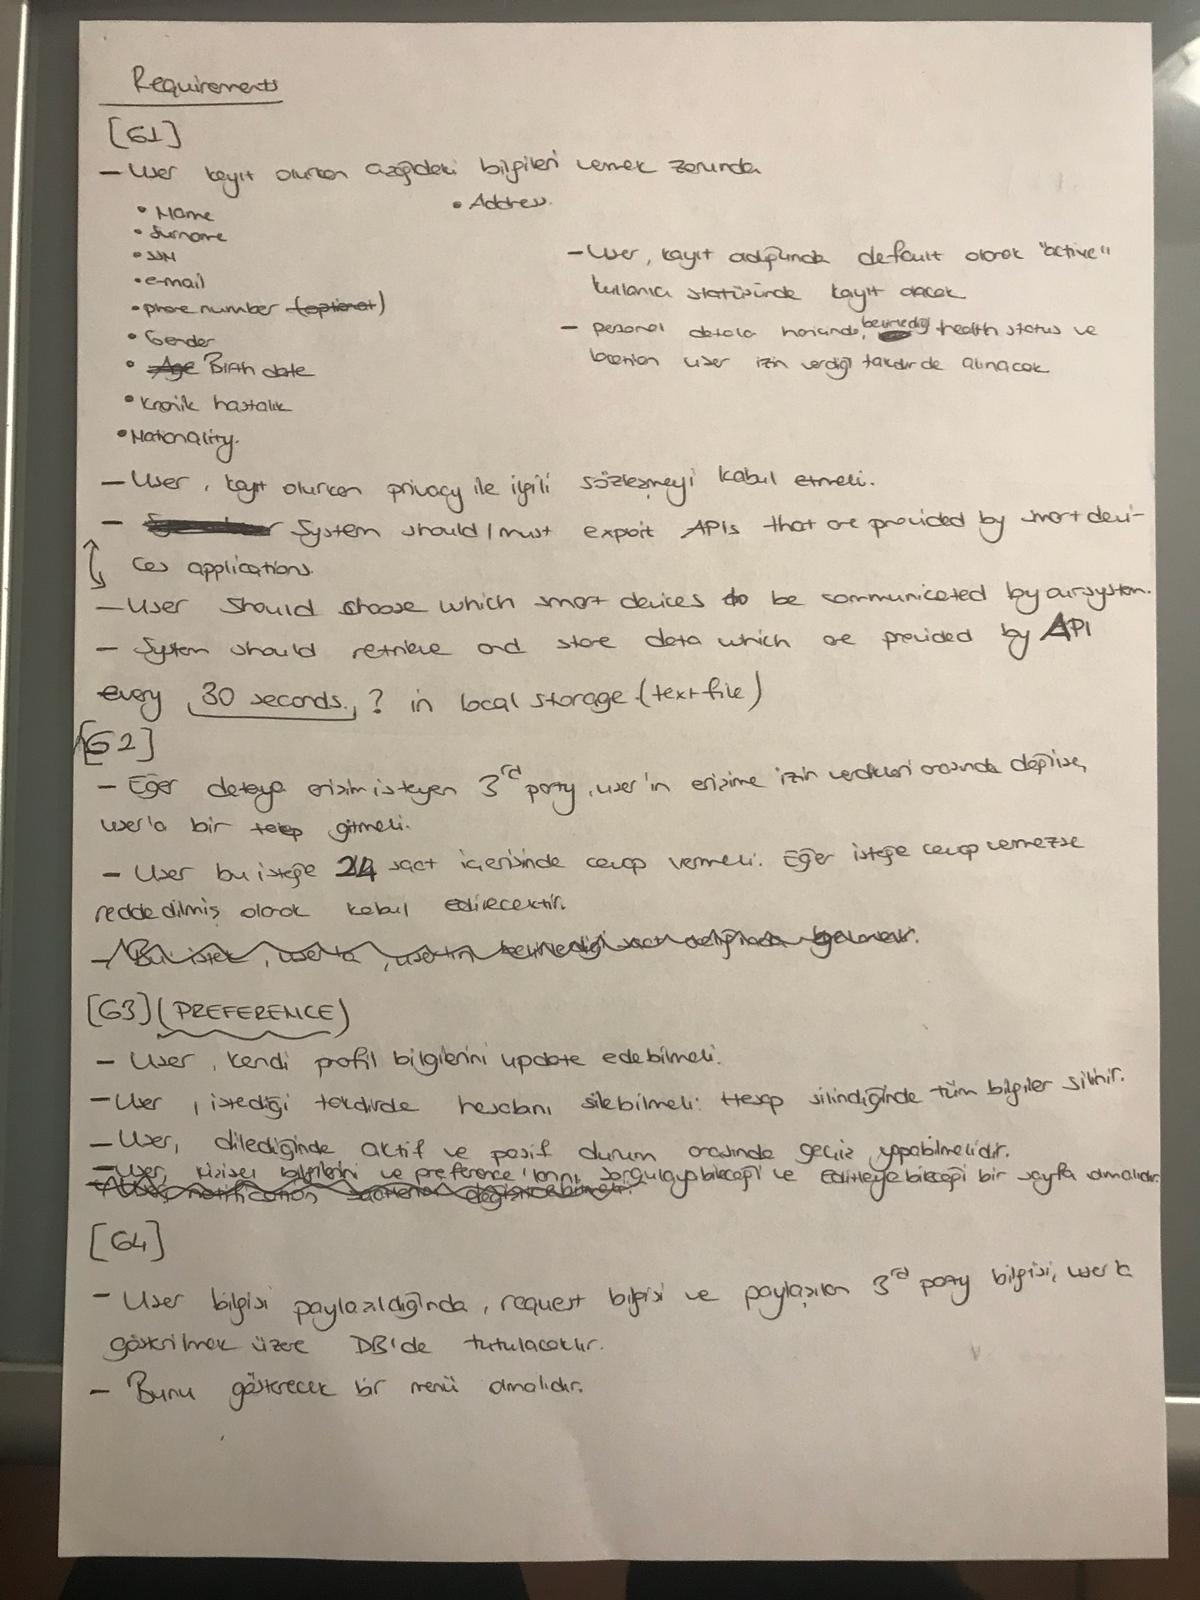 Requirements
[G1]
- User kayıt olurken aşağıdaki bilgileri vermek zorunda
• Name
• Surname
• SSN
• e-mail
• phone number (optional)
• Gender
• Age Birth date
• Kronik hastalık
• Nationality.
• Address.
- User, kayıt olduğunda default olarak "active"
kullanıcı statüsünde kayıt olacak
- personal data haricinde, belirlediği health status ve
location user izin verdiği takdirde alınacak
- User, kayıt olurken privacy ile ilgili sözleşmeyi kabul etmeli.
- System should/must export APIs that are provided by smart devi-
ces applications.
- User should choose which smart devices to be communicated by our system.
- System should retrieve and store data which are provided by API
every 30 seconds., ? in local storage (text file)
[G2]
- Eğer dataya erişim isteyen 3rd party, user'ın erişime izin verdikleri arasında değilse,
user'a bir talep gitmeli.
- User bu isteğe 24 saat içerisinde cevap vermeli. Eğer isteğe cevap vermezse
reddedilmiş olarak kabul edilecektir.
- Bu istek, user'a, user'ın belirlediği saat aralığında
[G3] (PREFERENCE)
- User, kendi profil bilgilerini update edebilmeli.
- User, istediği takdirde hesabını silebilmeli. Hesap silindiğinde tüm bilgiler silinir.
- User, dilediğinde aktif ve pasif durum arasında geçiş yapabilmelidir.
- User, kişisel bilgilerini ve preference'larını sorgulayabileceği ve editleyebileceği bir sayfa olmalıdır.
- User, notification saatlerini değiştirebilmeli.
[G4]
- User bilgisi paylaşıldığında, request bilgisi ve paylaşılan 3rd party bilgisi, user'a
gösterilmek üzere DB'de tutulacaktır.
- Bunu gösterecek bir menü olmalıdır.